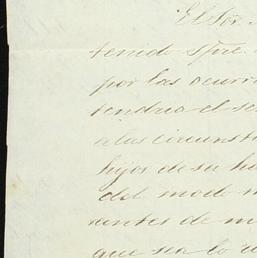 El Sor.
tenido spre.
por las ocurr
tendria el se
a las circunst
hijos de su ha
del modo m
rentes de m
que sea lo